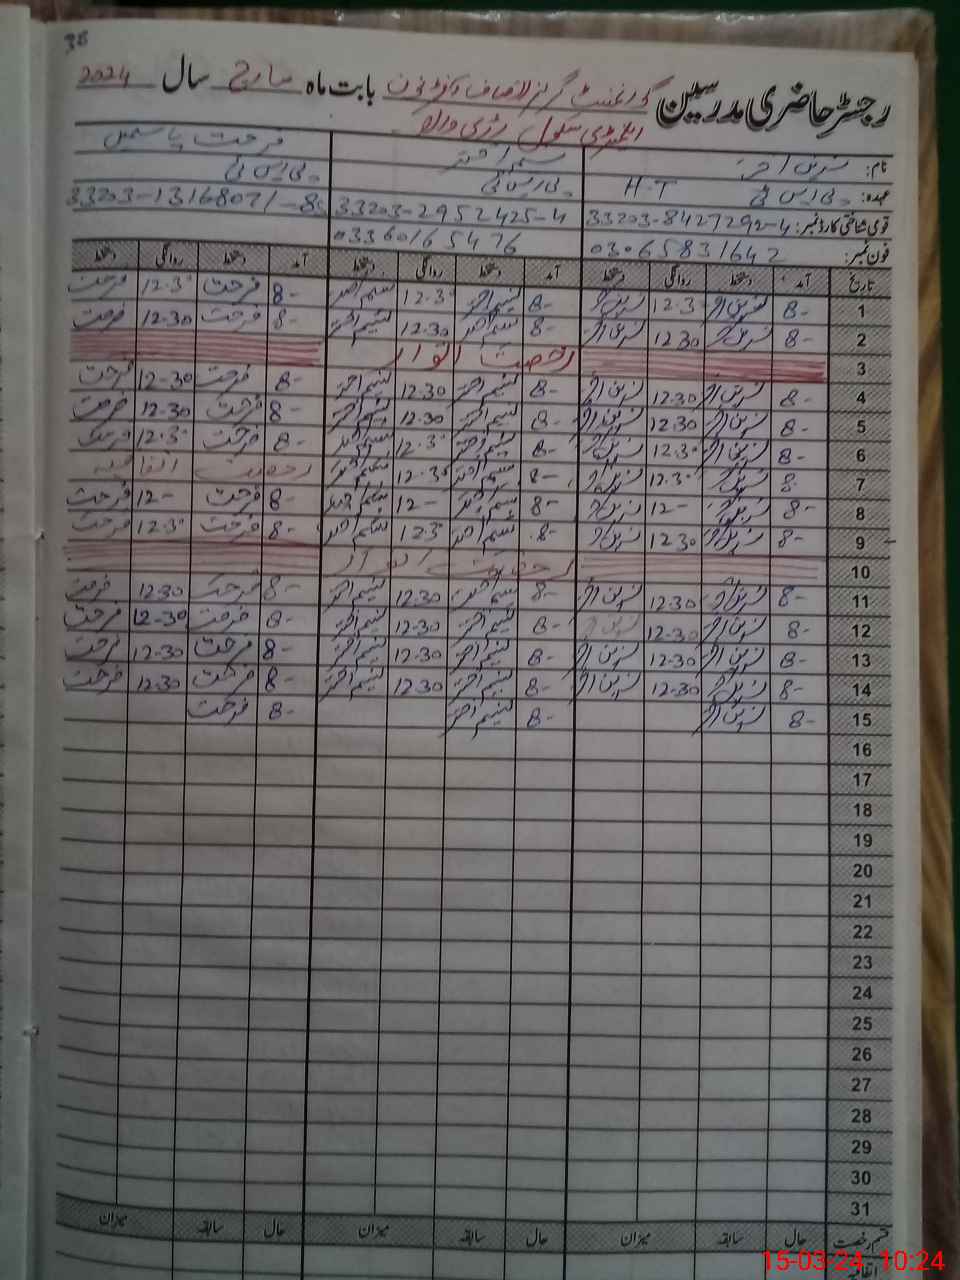 38
رجسٹر حاضری مدرسین گورنمنٹ گرلز بابت ماہ مارچ سال 2024
ایلیمنٹری سکول
نام: نسرین اختر نسیم اختر فرحت یاسمین
عہدہ: پی ایس ٹی H-T پی ایس ٹی پی ایس ٹی
قومی شناختی کارڈ نمبر: 33203-8427292-4 33203-2952425-4 33203-1316807-8
فون نمبر: 03065831642 03360165476
تاریخ آمد دستخط روانگی دستخط آمد دستخط روانگی دستخط آمد دستخط روانگی دستخط
1 8- نسرین اختر 12.30 نسرین اختر 8- نسیم اختر 12.30 نسیم اختر 8- فرحت 12.30 فرحت
2 8- نسرین اختر 12.30 نسرین اختر 8- نسیم اختر 12.30 نسیم اختر 8- فرحت 12-30 فرحت
3 رخصت اتوار
4 8- نسرین اختر 12.30 نسرین اختر 8- نسیم اختر 12.30 نسیم اختر 8- فرحت 12-30 فرحت
5 8- نسرین اختر 12.30 نسرین اختر 8- نسیم اختر 12.30 نسیم اختر 8- فرحت 12-30 فرحت
6 8- نسرین اختر 12.30 نسرین اختر 8- نسیم اختر 12.30 نسیم اختر 8- فرحت 12.30 فرحت
7 8- نسرین اختر 12.30 نسرین اختر 8- نسیم اختر 12.30 نسیم اختر رخصت اتفاقیہ
8 8- نسرین اختر 12- نسرین اختر 8- نسیم اختر 12- نسیم اختر 8- فرحت 12- فرحت
9 8- نسرین اختر 12.30 نسرین اختر 8- نسیم اختر 12.30 نسیم اختر 8- فرحت 12.30 فرحت
10 رخصت اتوار
11 8- نسرین اختر 12.30 نسرین اختر 8- نسیم اختر 12.30 نسیم اختر 8- فرحت 12.30 فرحت
12 8- نسرین اختر 12-30 نسرین اختر 8- نسیم اختر 12-30 نسیم اختر 8- فرحت 12-30 فرحت
13 8- نسرین اختر 12-30 نسرین اختر 8- نسیم اختر 12-30 نسیم اختر 8- فرحت 12-30 فرحت
14 8- نسرین اختر 12-30 نسرین اختر 8- نسیم اختر 12.30 نسیم اختر 8- فرحت 12.30 فرحت
15 8- نسرین اختر 8- نسیم اختر 8- فرحت
16
17
18
19
20
21
22
23
24
25
26
27
28
29
30
31
قسم رخصت حال سابقہ میزان حال سابقہ میزان حال سابقہ میزان
اتفاقیہ
15-03-24 10:24